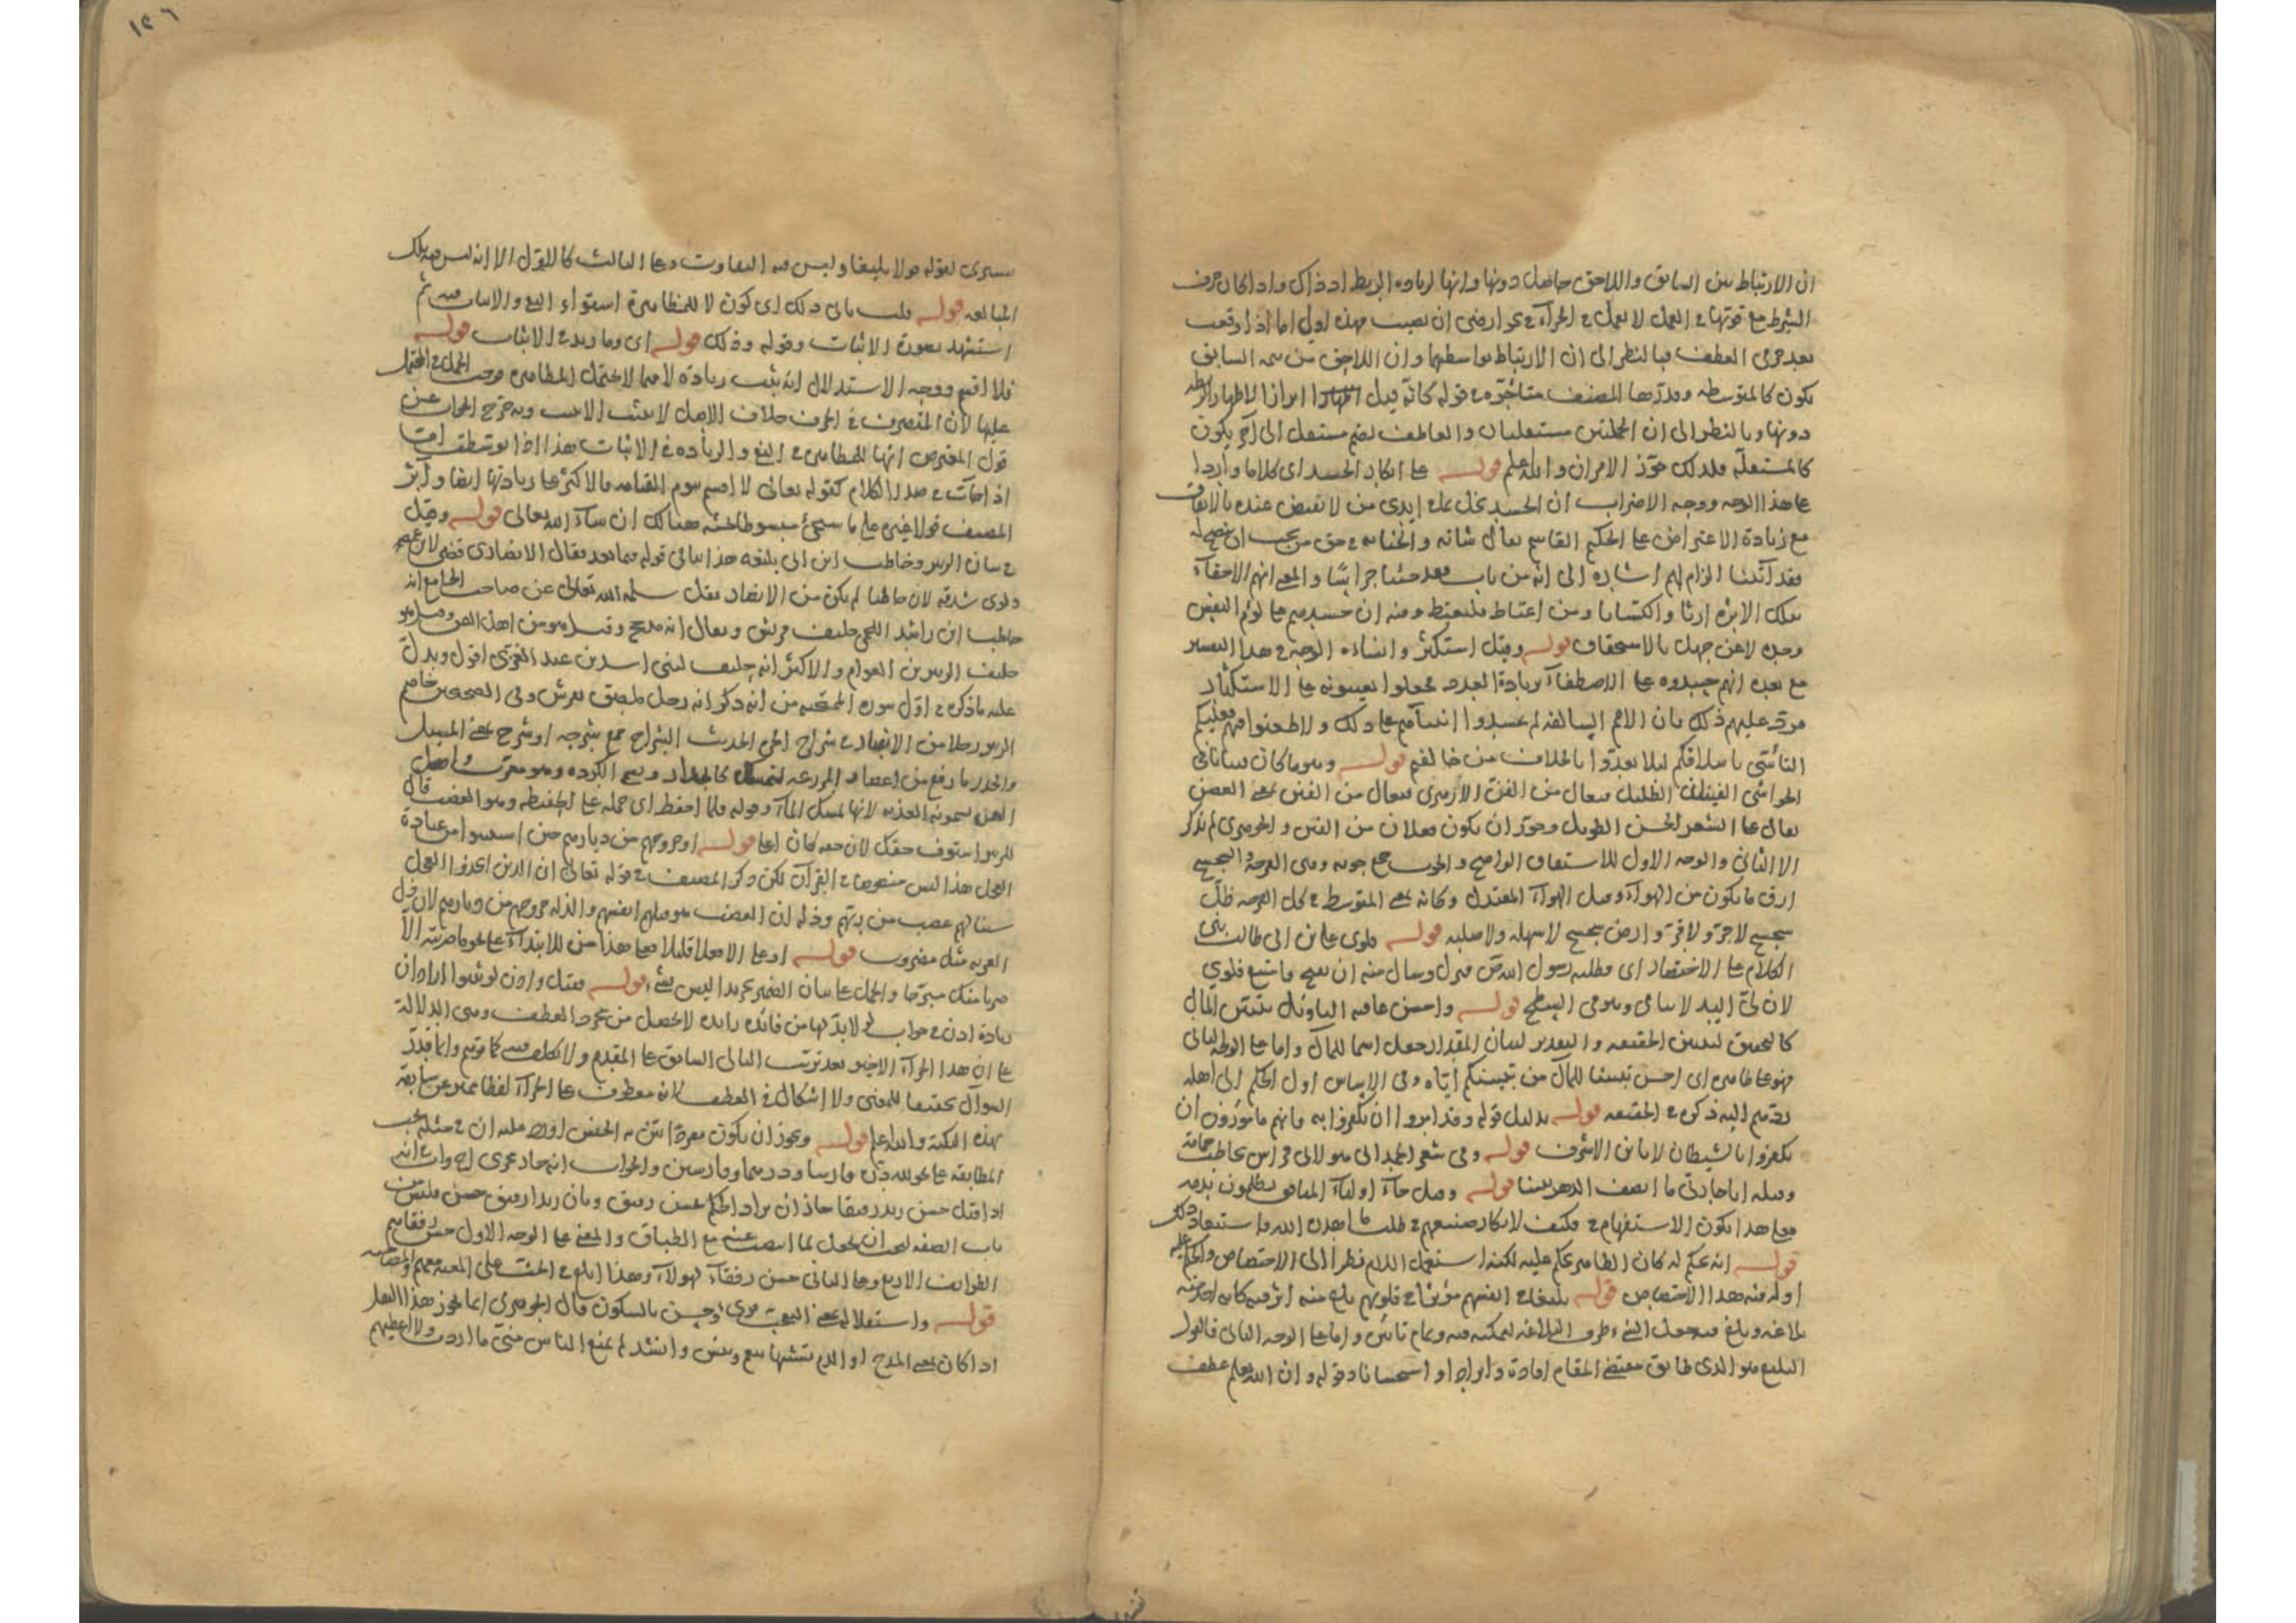 ان الارتباط بين السابق واللاحق حاصل دونها وانها لزياده الربط اذ ذاك واذا كان حرف
الشرط مع قوتها في العمل لا يعمل في الجزآء في نحو ارضى ان نصبت فهذه اولى اما اذا وقعت
بعد حرفي العطف فبالنظر الى ان الارتباط بواسطهما وان اللاحق من تتمه السابق
يكون كالمتوسطه وقدرها المصنف متأخره في قوله كانه قيل ابرازا لاظهار
دونها وبالنظر الى ان الجملتين مستقلتان والعاطف لضم مستقل الى آخر يكون
كالمستقلة فلذلك جوّز الامران والله اعلم قوله على انكار الحسد اى كلاما واردا
على هذا الوجه ووجه الاضراب ان الحسد بخل على ايدى من لا نقيض عنده بالانفاق
مع زيادة الاعتراض على الحكيم القاسم تعالى شانه في حق من يجب ان
فقد آتينا الزام لهم اشاره الى انه من باب فقد جئنا خراسانا والمعنى انهم الاحقآء
بملك الابوّه ارثا واكتسابا ومن اغتباط ومنه ان حسدهم على لؤم النفس
وحده لا عن جهل بالاستحقاق قوله وقيل استكثر وافاده الوجه في هذا التفسير
مع بعده انهم حسدوه على الاصطفآء بزيادة العدد فجعلوا يعيبونه على الاستكثار
فردّ عليهم ذلك بان الامم السالفه لم يحسدوا انبيآءهم على ذلك ولا طعنوا فيهم فعليكم
التأسّى باسلافكم لئلا تعدّوا بالخلاف من خالفهم قوله وهو ما كان فينانا فى
الحواشى الفينان الظليل فيعال من الفنن الازهرى فيعال من الفنن بمعنى الغصن
يقال على الشعر الحسن الطويل وجوّز ان يكون فعلان من الفين والجوهرى لم يذكر
الا الثانى والوجه الاول للاشتقاق الواضح والجوب جمع جوبه وهى الفرجة والسجسج
ارق ما يكون من الهوآء وقيل الهوآء المعتدل وكانه بمعنى المتوسط في كل الفرجه ظلّ
سجسج لا حرّ ولا قرّ وارض سجسج لا سهله ولا صلبه قوله فلوى على بن ابى طالب بنى
الكلام على الاختصار اى فطلبه رسول الله فنزل وسال منه ان يفتح فامتنع فلوى
لان لىّ اليد لا ينافى وهو فى السطح قوله واحسن عاقبه التاويل تبيّن المآل
كالتحقيق لتبيين الحقيقه والتقدير لبيان المقدار جعل اسما للمآل واما على الوجه الثانى
فهو على ظاهره اى احسن تبيينا للمآل من تبيينكم اياه وفى الاساس اول الحكم الى اهله
تقدّم اليه ذكره في الحقيقه قوله بدليل قوله وقد امروا ان يكفروا به فانهم مامورون ان
يكفروا بالشيطان لا بابن الاشرف قوله وفى شعر الحمدانى هو لابى فراس يخاطب حمامة
وقبله ايا جارتى ما انصف الدهر بيننا قوله وقيل جآء اوليآء المنافق يطلبون بدمه
فعلى هذا يكون الاستفهام في فكيف لانكار صنيعهم في طلب ما اهدره الله واستبعاد ذلك
قوله انه يحكم له كان الظاهر يحكم عليه لكنه استعمل اللام نظرا الى الاختصاص والحكم عليه
او له فيه هذا الاختصاص قوله بليغا في انفسهم مؤثرا في قلوبهم بلغ منه اثر فيه
بلاغة وبلغ فيه جعل النفس ظرف البلاغه لتمكنه فيه وتمام تاثيره واما على الوجه الثانى فالقول
البليغ هو الذى طابق مقتضى المقام افادة وايرادا واستحسانا وقوله وان الله يعلم عطف
١٢٦
تفسيرى لقوله قولا بليغا وليس فيه التفاوت وعلى الثالث كالاوّل الا انه ليس فيه تلك
المبالغه قوله قلت يابى ذلك اى كون لا للمظاهرة استواء النفى والاثبات فيه ثم
استشهد بصورة الاثبات وقوله وذلك قوله اى وما زيد في الاثبات قوله
فلا اقسم ووجه الاستدلال انه يثبت زيادة لا فيما لا يحتمل المظاهره فوجب الحمل في المحتمل
عليها لان المتصرف في الحرف خلاف الاصل لا يثبت وبه خرج الجواب عن
قول المعترض انها للمظاهره في النفى والزياده في الاثبات هذا اذا توسّطت امّا
اذا جآءت في صدر الكلام كقوله تعالى لا اقسم بيوم القيامه فالاكثر على زيادتها ايضا وآثر
المصنف قولا غيره على ما سيجئ مبسوطا هنالك ان شآء الله تعالى قوله وقيل
في شان الزبير وحاطب ابن ابى بلتعه هذا ينافى قوله فيما بعد فقال الانصارى قضى لابن عمته
ولوى شدقه لان حاطبا لم يكن من الانصار نقل سلمه الله تعالى عن صاحب الجامع انه
حاطب ابن راشد اللخمى حليف قريش ويقال انه مذحج وقيل هو من اهل اليمن وقيل هو
حليف الزبير بن العوام والاكثر انه حليف لبنى اسد بن عبد العزّى اقول ويدلّ
عليه ما ذكره في اوّل سورة الممتحنه من انه ذكر انه رجل ملصق بقريش وفى الصحيحين خاصم
الزبير رجلا من الانصار في شراج الحرّة الحديث الشراج جمع شرجه او شرج بمعنى المسيل
والجدر ما رفع من اعضاد المزرعه لتمسك كالجدار
لانها تمسك المآء وقوله فلما احفظ اى حمله على الحفيظه وهو الغضب قال
للزبير استوف حقك لان معه كان قوله او خروجهم من ديارهم حين استتيبوا من عبادة
العجل هذا ليس منصوصا في القرآن لكن ذكر المصنف في قوله تعالى ان الذين اتخذوا العجل
سينالهم غضب من ربهم وذله ان الغضب هو قتلهم انفسهم والذله خروجهم من ديارهم لان ذل
الغربه مثل مضروب قوله او على الا فعلا قليلا فعلى هذا من للابتدآء على نحو ما ضربته الّا
ضربا منك مبرّحا والحمل على بيان الضمير تجريدا ليس بشئ قوله فقيل واذن لو ثبتوا اراد ان
زيادة اذن في جواب لو لا بدّ لها من فائده زايده لا تحصل من مجرد العطف وهى الدلالة
على ان هذا الجزآء الاخير بعد ترتب التالى السابق على المقدم ولا تكلف فيه كما توهم وانما قدّر
السوآل تحقيقا للمعنى ولا اشكال في العطف لانه معطوف على الجزآء لفظا
بهذه النكتة والله اعلم قوله ويجوز ان يكون مفردا بيّن به الجنس اورد عليه ان في مثله يجب
المطابقه على نحو لله درّه فارسا ودرهما وفارسين والجواب
اذا قيل حسن زيد رفيقا جاز ان يراد الحكم بحسن رفيق وبان زيدا رفيق حسن فليس من
باب الصفه ليجب ان يجعل لما انتصب عنه مع الطباق والمعنى على الوجه الاول حسن رفقاهم
الطوايف الاربع وعلى الثانى حسن رفقآء هولآء وهذا ابلغ في الحث على المعيه معهم
قوله ولاستقلاله بمعنى التعجب قرئ وحسن بالسكون قال الجوهرى انما يجوز هذا النقل
اذا كان بمعنى المدح او الذم تشبيها بنعم وبئس وانشد لم يمنع الناس منّى ما اردت ولا اعطيهم